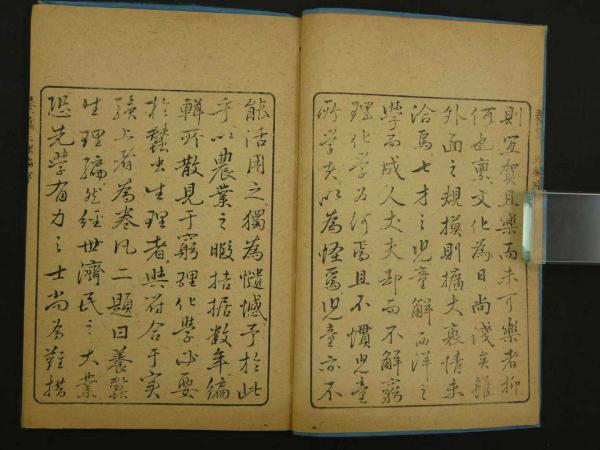 則冝賀且樂而未可樂者抑
何也夷文化為日尚淺矣雖
外面之規摸則擴大裏情未
洽焉七才之児童解西洋之
學而成人丈夫却而不解窮
理化學為何焉且不慣児童
所学矣以為怪焉児童亦不
能活用之獨為憾予於此
乎以農業之暇拮据数年編
輯所散見于窮理化學
於蠶生理者與符合于実
驗上者為巻凡二題曰養蠶
生理編然經世濟民之大業
恐先學有力之士尚為難措